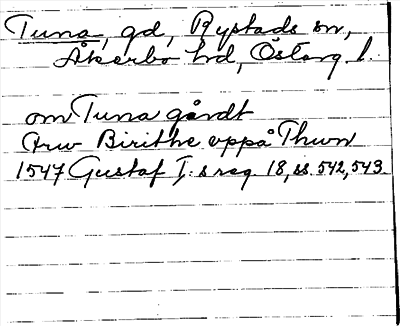 Tuna, gd, Rystads sn,
Åkerbo hd, Österg. l.
om Tuna gårdt
Frw Birithe vppå Thwn
1547 Gustaf I: s reg. 18, ss. 542, 543.